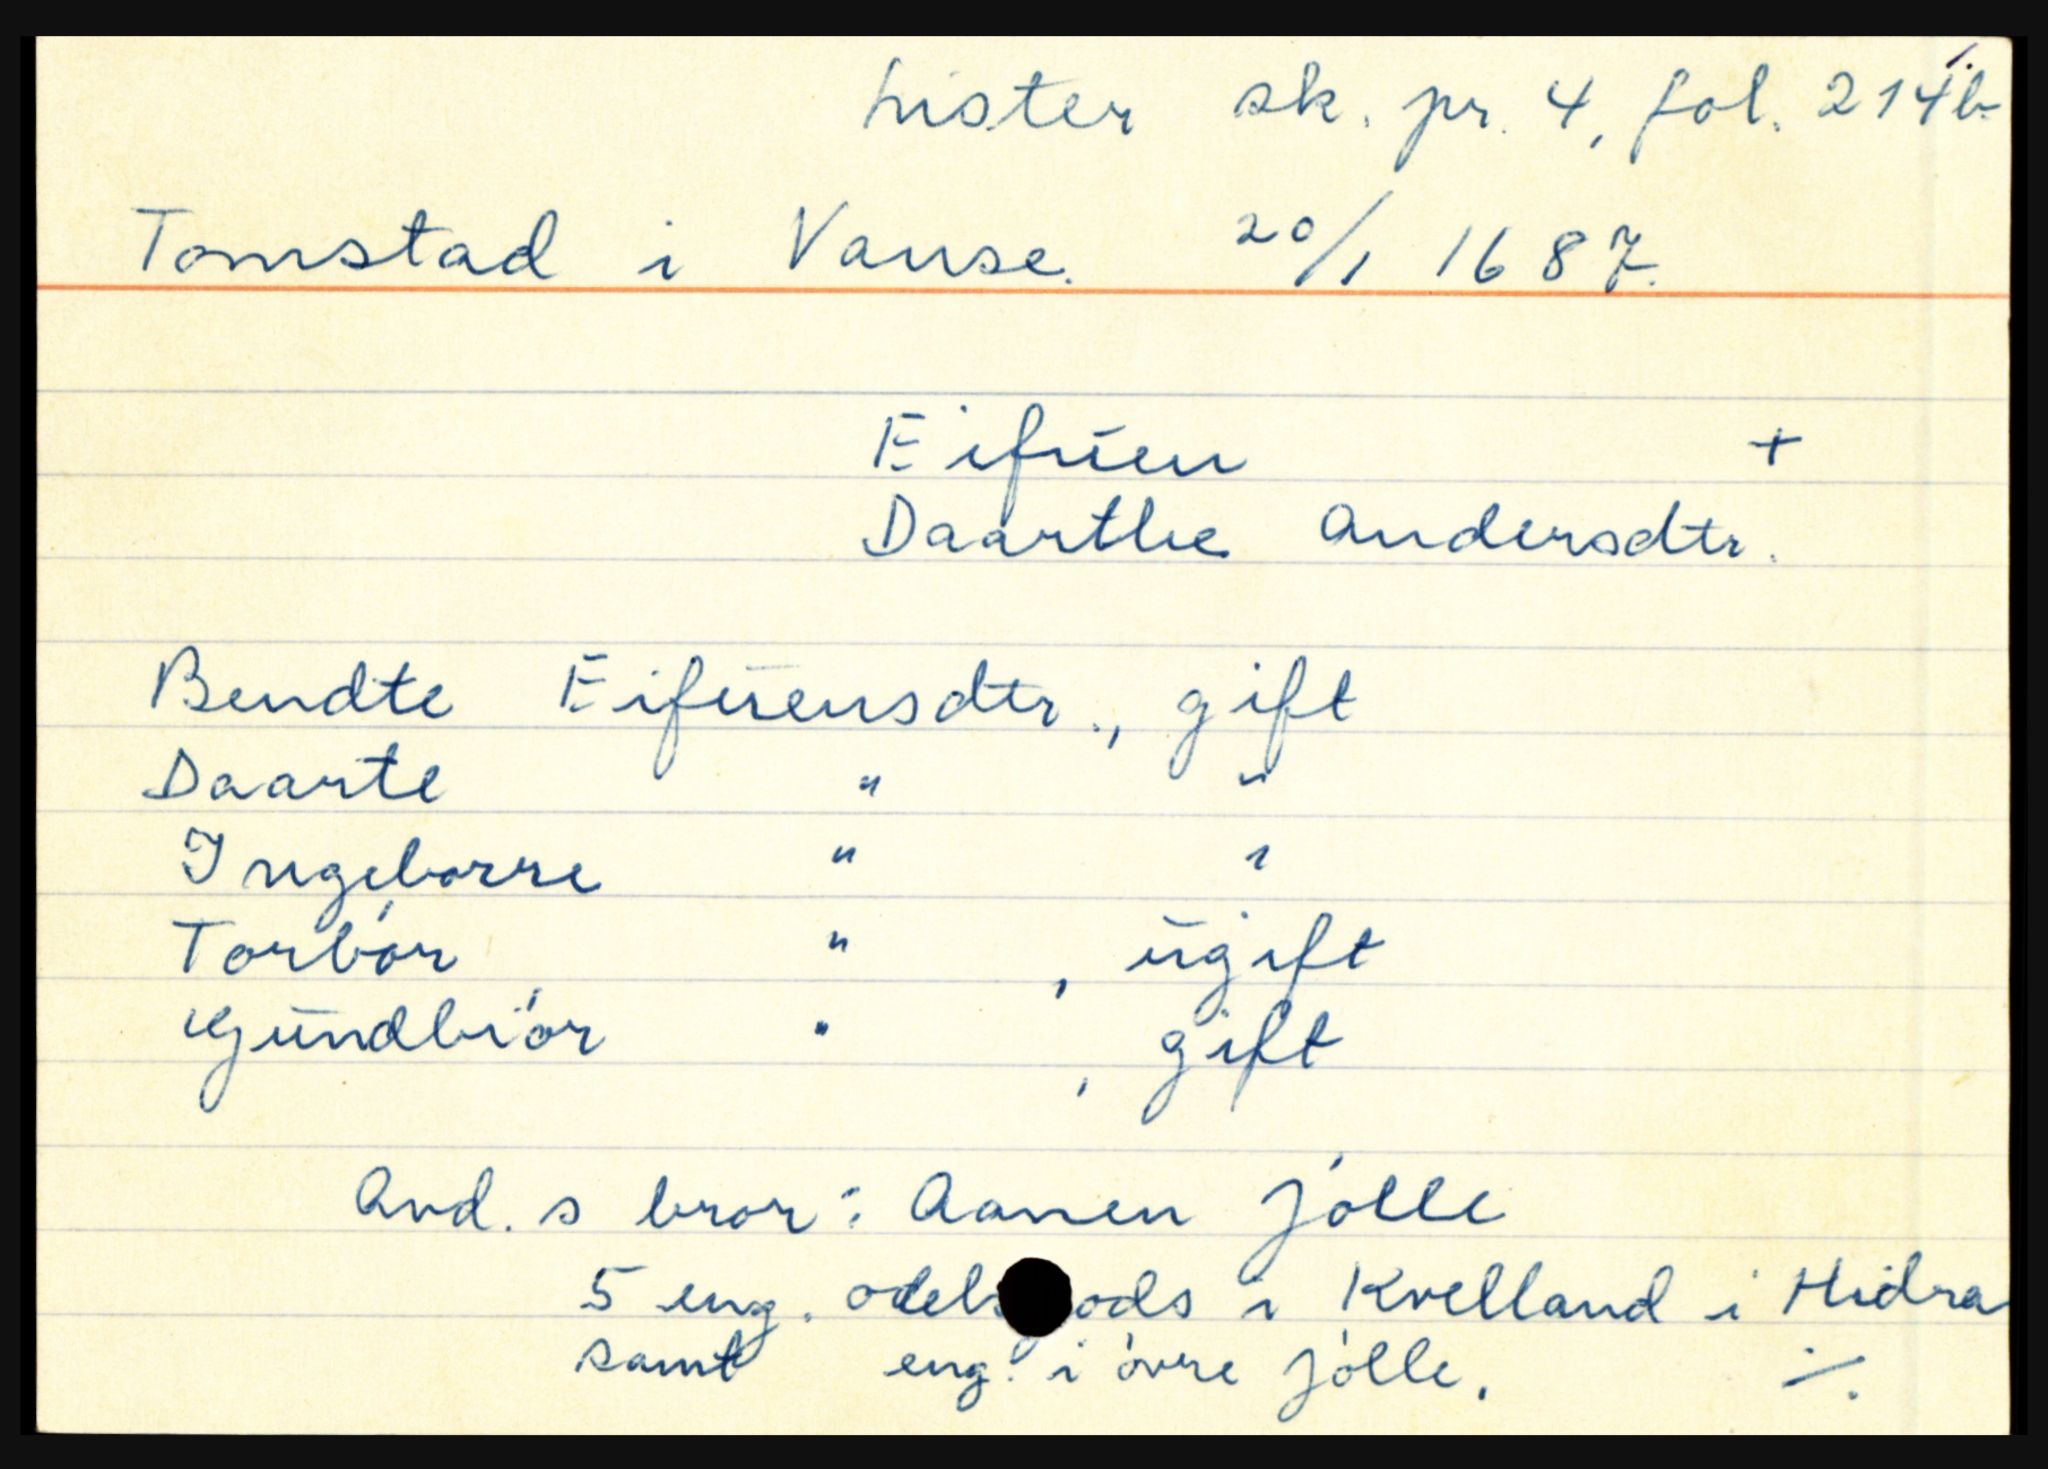 Lister sk. pr. 4, fol. 214b
1.
Tomstad i Vanse. 20/1 1687.
Eifuen +
Daarthe Andersdtr.
Bendte Eifuensdtr., gift
Daarte " "
Ingeborre " "
Torbór " , ugift
Gundbiór " , gift
Avd. s bror: Aanen Jólle
5 eng. odelsgods i Kvelland i Hidra
samt eng. i óvre Jólle. ./.